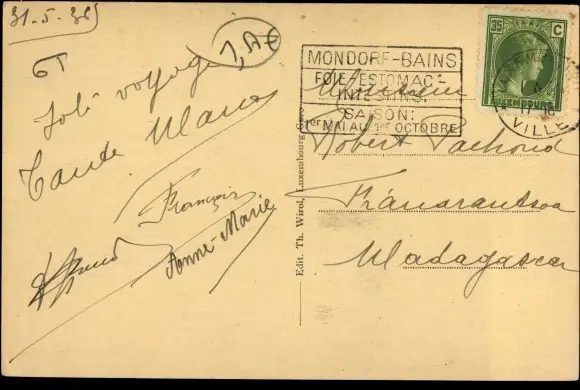 31-5-35
1,A€
Joli voyage
Tante Maria
François
Anne-Marie
Edit. Th. Wirol, Luxembourg-Gare
MONDORF-BAINS
FOIE-ESTOMAC-
INTESTINS.
SAISON:
1er MAI AU 1er OCTOBRE
35 C
LUXEMBOURG
VILLE
Monsieur
Robert Pachoud
Fianarantsoa
Madagascar